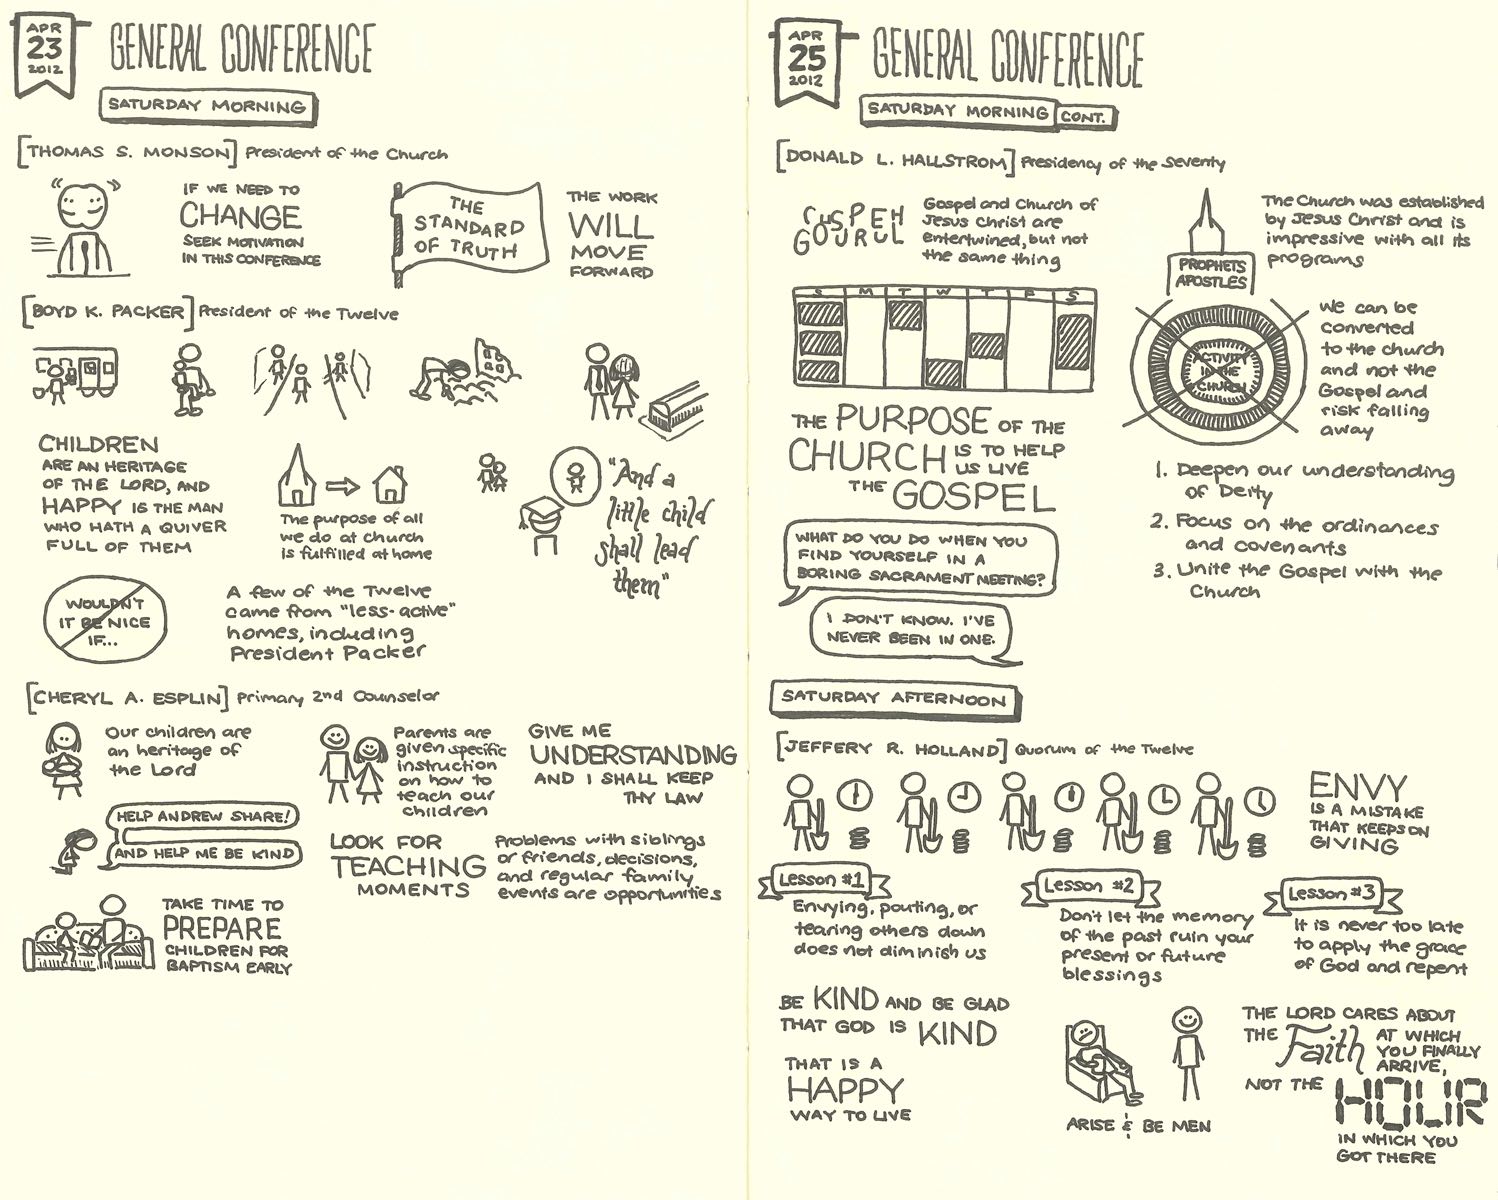 APR
23
2012
GENERAL CONFERENCE
SATURDAY MORNING
[THOMAS S. MONSON] President of the Church
IF WE NEED TO
CHANGE
SEEK MOTIVATION
IN THIS CONFERENCE
THE
STANDARD
OF TRUTH
THE WORK
WILL
MOVE
FORWARD
[BOYD K. PACKER] President of the Twelve
CHILDREN
ARE AN HERITAGE
OF THE LORD, AND
HAPPY IS THE MAN
WHO HATH A QUIVER
FULL OF THEM
The purpose of all
we do at church
is fulfilled at home
"And a
little child
shall lead
them"
WOULDN'T
IT BE NICE
IF...
A few of the Twelve
came from "less-active"
homes, including
President Packer
[CHERYL A. ESPLIN] Primary 2nd Counselor
Our children are
an heritage of
the Lord
Parents are
given specific
instruction
on how to
teach our
children
GIVE ME
UNDERSTANDING
AND I SHALL KEEP
THY LAW
HELP ANDREW SHARE!
AND HELP ME BE KIND
LOOK FOR
TEACHING
MOMENTS
Problems with siblings
or friends, decisions,
and regular family
events are opportunities
TAKE TIME TO
PREPARE
CHILDREN FOR
BAPTISM EARLY
APR
25
2012
GENERAL CONFERENCE
SATURDAY MORNING CONT.
[DONALD L. HALLSTROM] Presidency of the Seventy
Gospel and Church of
Jesus Christ are
entertwined, but not
the same thing
PROPHETS
APOSTLES
The Church was established
by Jesus Christ and is
impressive with all its
programs
S M T W T F S
ACTIVITY
IN THE
CHURCH
We can be
converted
to the church
and not the
Gospel and
risk falling
away
THE PURPOSE OF THE
CHURCH IS TO HELP
US LIVE
THE GOSPEL
1. Deepen our understanding
of Deity
2. Focus on the ordinances
and covenants
3. Unite the Gospel with the
Church
WHAT DO YOU DO WHEN YOU
FIND YOURSELF IN A
BORING SACRAMENT MEETING?
I DON'T KNOW. I'VE
NEVER BEEN IN ONE.
SATURDAY AFTERNOON
[JEFFERY R. HOLLAND] Quorum of the Twelve
ENVY
IS A MISTAKE
THAT KEEPS ON
GIVING
Lesson #1
Envying, pouting, or
tearing others down
does not diminish us
Lesson #2
Don't let the memory
of the past ruin your
present or future
blessings
Lesson #3
It is never too late
to apply the grace
of God and repent
BE KIND AND BE GLAD
THAT GOD IS KIND
THAT IS A
HAPPY
WAY TO LIVE
ARISE & BE MEN
THE LORD CARES ABOUT
THE Faith AT WHICH
YOU FINALLY
ARRIVE,
NOT THE HOUR
IN WHICH YOU
GOT THERE